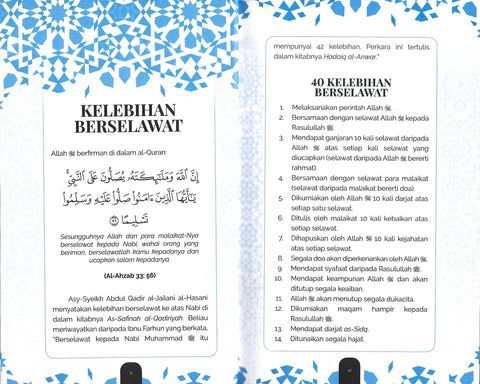 KELEBIHAN
BERSELAWAT
Allah ﷻ berfirman di dalam al-Quran:
إِنَّ ٱللَّهَ وَمَلَـٰٓئِكَتَهُۥ يُصَلُّونَ عَلَى ٱلنَّبِىِّ ۚ
يَـٰٓأَيُّهَا ٱلَّذِينَ ءَامَنُوا۟ صَلُّوا۟ عَلَيْهِ وَسَلِّمُوا۟
تَسْلِيمًا ﴿٥٦﴾
Sesungguhnya Allah dan para malaikat-Nya
berselawat kepada Nabi, wahai orang yang
beriman, berselawatlah kamu kepadanya dan
ucapkan salam kepadanya.
(Al-Ahzab 33: 56)
Asy-Syeikh Abdul Qadir al-Jailani al-Hasani
menyatakan kelebihan berselawat ke atas Nabi di
dalam kitabnya As-Safinah al-Qadiriyah. Beliau
meriwayatkan daripada Ibnu Farhun yang berkata,
"Berselawat kepada Nabi Muhammad ﷺ itu
mempunyai 42 kelebihan. Perkara ini tertulis
dalam kitabnya Hadaiq al-Anwar."
40 KELEBIHAN
BERSELAWAT
1. Melaksanakan perintah Allah ﷻ.
2. Bersamaan dengan selawat Allah ﷻ kepada
Rasulullah ﷺ.
3. Mendapat ganjaran 10 kali selawat daripada
Allah ﷻ atas setiap kali selawat yang
diucapkan (selawat daripada Allah ﷻ bererti
rahmat).
4. Bersamaan dengan selawat para malaikat
(selawat daripada malaikat bererti doa).
5. Dikurniakan oleh Allah ﷻ 10 kali darjat atas
setiap satu selawat.
6. Ditulis oleh malaikat 10 kali kebaikan atas
setiap selawat.
7. Dihapuskan oleh Allah ﷻ 10 kali kejahatan
atas setiap selawat.
8. Segala doa akan diperkenankan oleh Allah ﷻ.
9. Mendapat syafaat daripada Rasulullah ﷺ.
10. Mendapat keampunan Allah ﷻ dan akan
ditutup segala keaiban.
11. Allah ﷻ akan menutup segala dukacita.
12. Dikurniakan maqam hampir kepada
Rasulullah ﷺ.
13. Mendapat darjat as-Sidq.
14. Ditunaikan segala hajat.